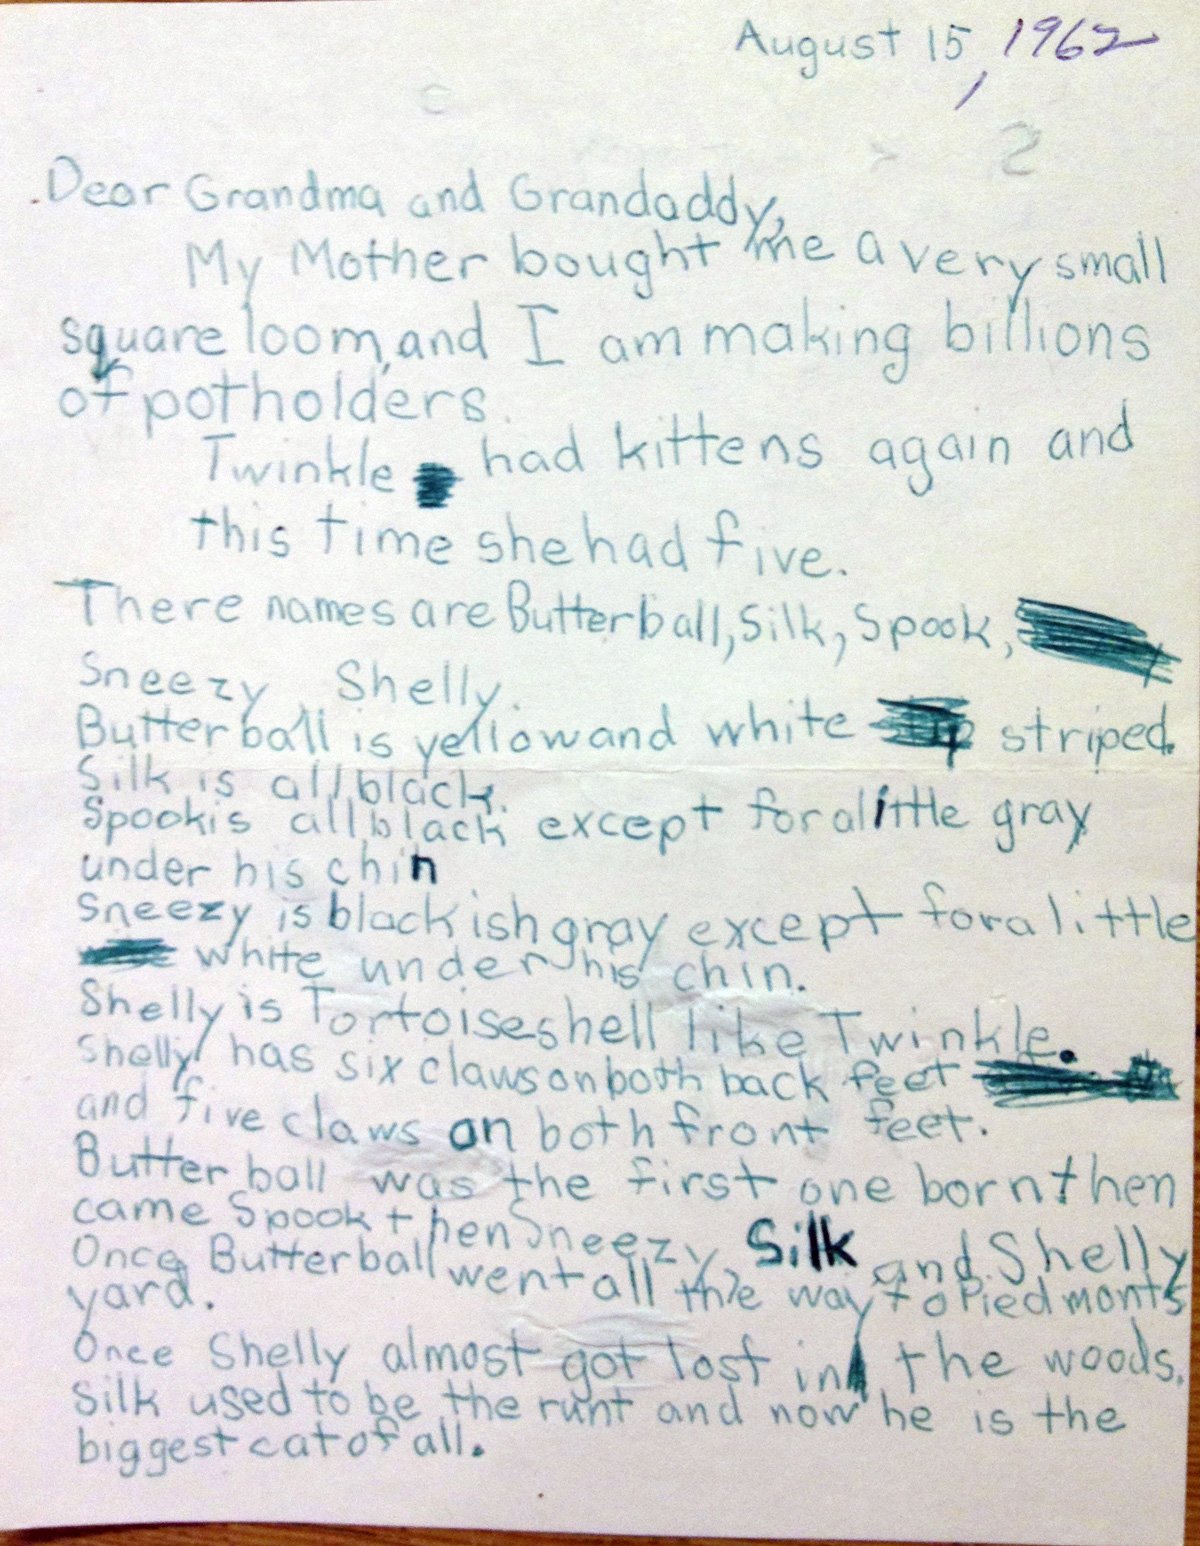 August 15, 1962
Dear Grandma and Grandaddy,
My Mother bought me a very small
square loom, and I am making billions
of potholders.
Twinkle had kittens again and
this time she had five.
There names are Butterball, Silk, Spook,
Sneezy, Shelly.
Butterball is yellow and white striped.
Silk is all black.
Spook is all black except for a little gray
under his chin
Sneezy is blackish gray except for a little
white under his chin.
Shelly is Tortoiseshell like Twinkle.
Shelly has six claws on both back feet
and five claws on both front feet.
Butterball was the first one born then
came Spook then Sneezy, Silk and Shelly
Once Butterball went all the way to Piedmonts
yard.
Once Shelly almost got lost in the woods.
Silk used to be the runt and now he is the
biggest cat of all.